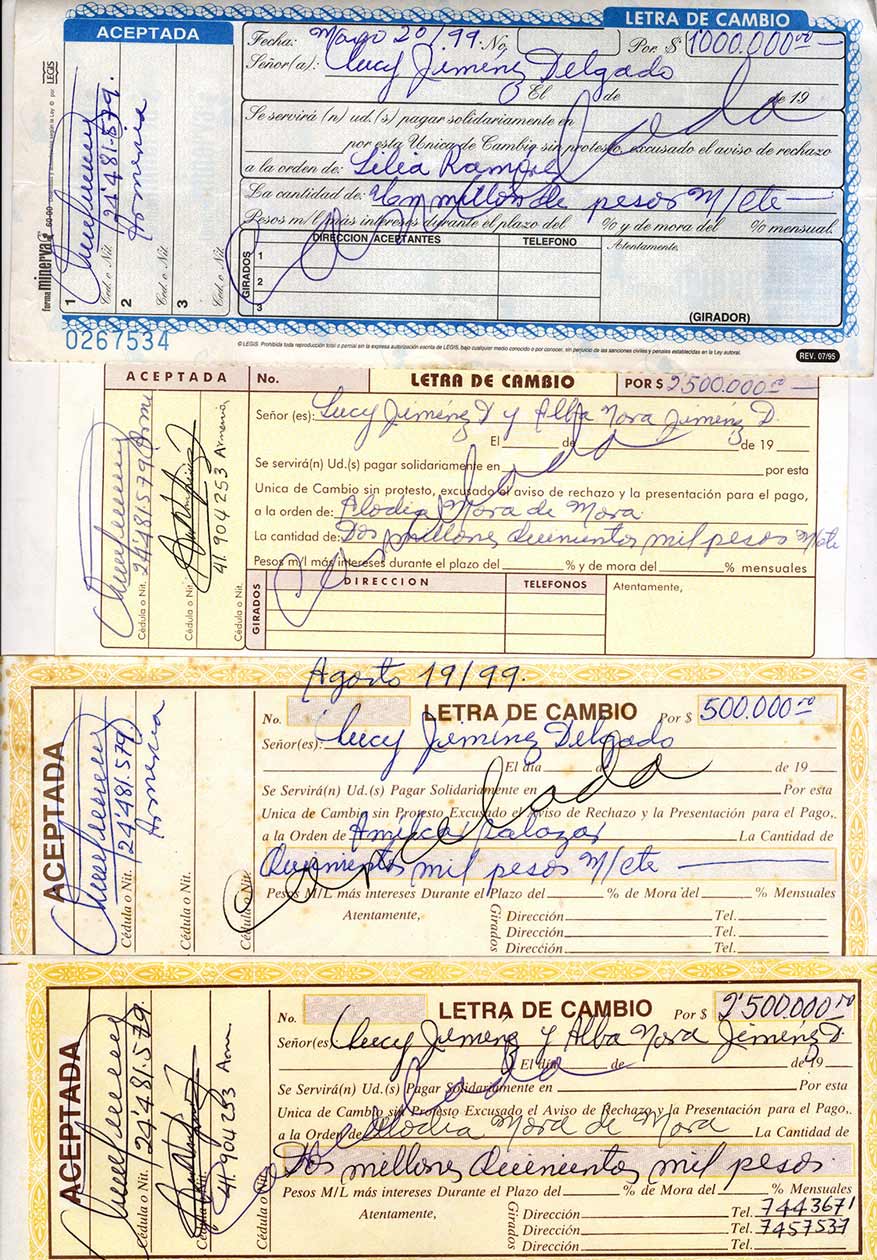 LETRA DE CAMBIO
ACEPTADA
Fecha: Mayo 20/99. No. Por $ 1000.000 00
Señor(a): Lucy Jiménez Delgado
El de de 19
Se servirá (n) ud.(s) pagar solidariamente en
por esta Unica de Cambio sin protesto, excusado el aviso de rechazo
a la orden de: Lilia
La cantidad de: Un millon de pesos M/cte
Pesos m/l más intereses durante el plazo del % y de mora del % mensual.
Cancelada
DIRECCION ACEPTANTES TELEFONO Atentamente,
GIRADOS
1
2
3
(GIRADOR)
24'481.579.
Armenia
1 Ced. o Nit.
2 Ced. o Nit.
3 Ced. o Nit.
forma minerva 60-00
LEGIS
0267534
© LEGIS. Prohibida toda reproducción total o parcial sin la expresa autorización escrita de LEGIS, bajo cualquier medio conocido o por conocer, sin perjuicio de las sanciones civiles y penales establecidas en la Ley autoral.
REV. 07/95
ACEPTADA No. LETRA DE CAMBIO POR $ 2500.000 00
Señor (es): Lucy Jiménez D y Alba Nora Jiménez D.
El de de 19
Se servirá(n) Ud.(s) pagar solidariamente en por esta
Unica de Cambio sin protesto, excusado el aviso de rechazo y la presentación para el pago,
a la orden de: Alodia Mora de Mora
La cantidad de: Dos millones Quinientos mil pesos M/cte
Pesos m/l más intereses durante el plazo del % y de mora del % mensuales
Cancelada
DIRECCION TELEFONOS Atentamente,
GIRADOS
24'481.579 Arme
41.904253 Armenia
Cédula o Nit.
Cédula o Nit.
Cédula o Nit.
Agosto 19/99.
ACEPTADA
No. LETRA DE CAMBIO Por $ 500.000 00
Señor(es): Lucy Jiménez Delgado
El día de de 19
Se Servirá(n) Ud.(s) Pagar Solidariamente en Por esta
Unica de Cambio sin Protesto Excusado el Aviso de Rechazo y la Presentación para el Pago,.
a la Orden de Salazar La Cantidad de
Quinientos mil pesos M/cte
Pesos M/L más intereses Durante el Plazo del % de Mora del % Mensuales
Cancelada
Atentamente,
Girados
Dirección Tel.
Dirección Tel.
Dirección Tel.
24'481.579
Armenia
Cédula o Nit.
Cédula o Nit.
Cédula o Nit.
ACEPTADA
No. LETRA DE CAMBIO Por $ 2'500.000 00
Señor(es) Lucy Jiménez y Alba Nora Jiménez D.
El día de de 19
Se Servirá(n) Ud.(s) Pagar Solidariamente en Por esta
Unica de Cambio sin Protesto Excusado el Aviso de Rechazo y la Presentación para el Pago,.
a la Orden de Alodia Mora de Mora La Cantidad de
Dos millones Quinientos mil pesos.
Pesos M/L más intereses Durante el Plazo del % de Mora del % Mensuales
Cancelada
Atentamente,
Girados
Dirección Tel. 7443671
Dirección Tel. 7457537
Dirección Tel.
24'481.579.
41.904253 Arm
Cédula o Nit.
Cédula o Nit.
Cédula o Nit.